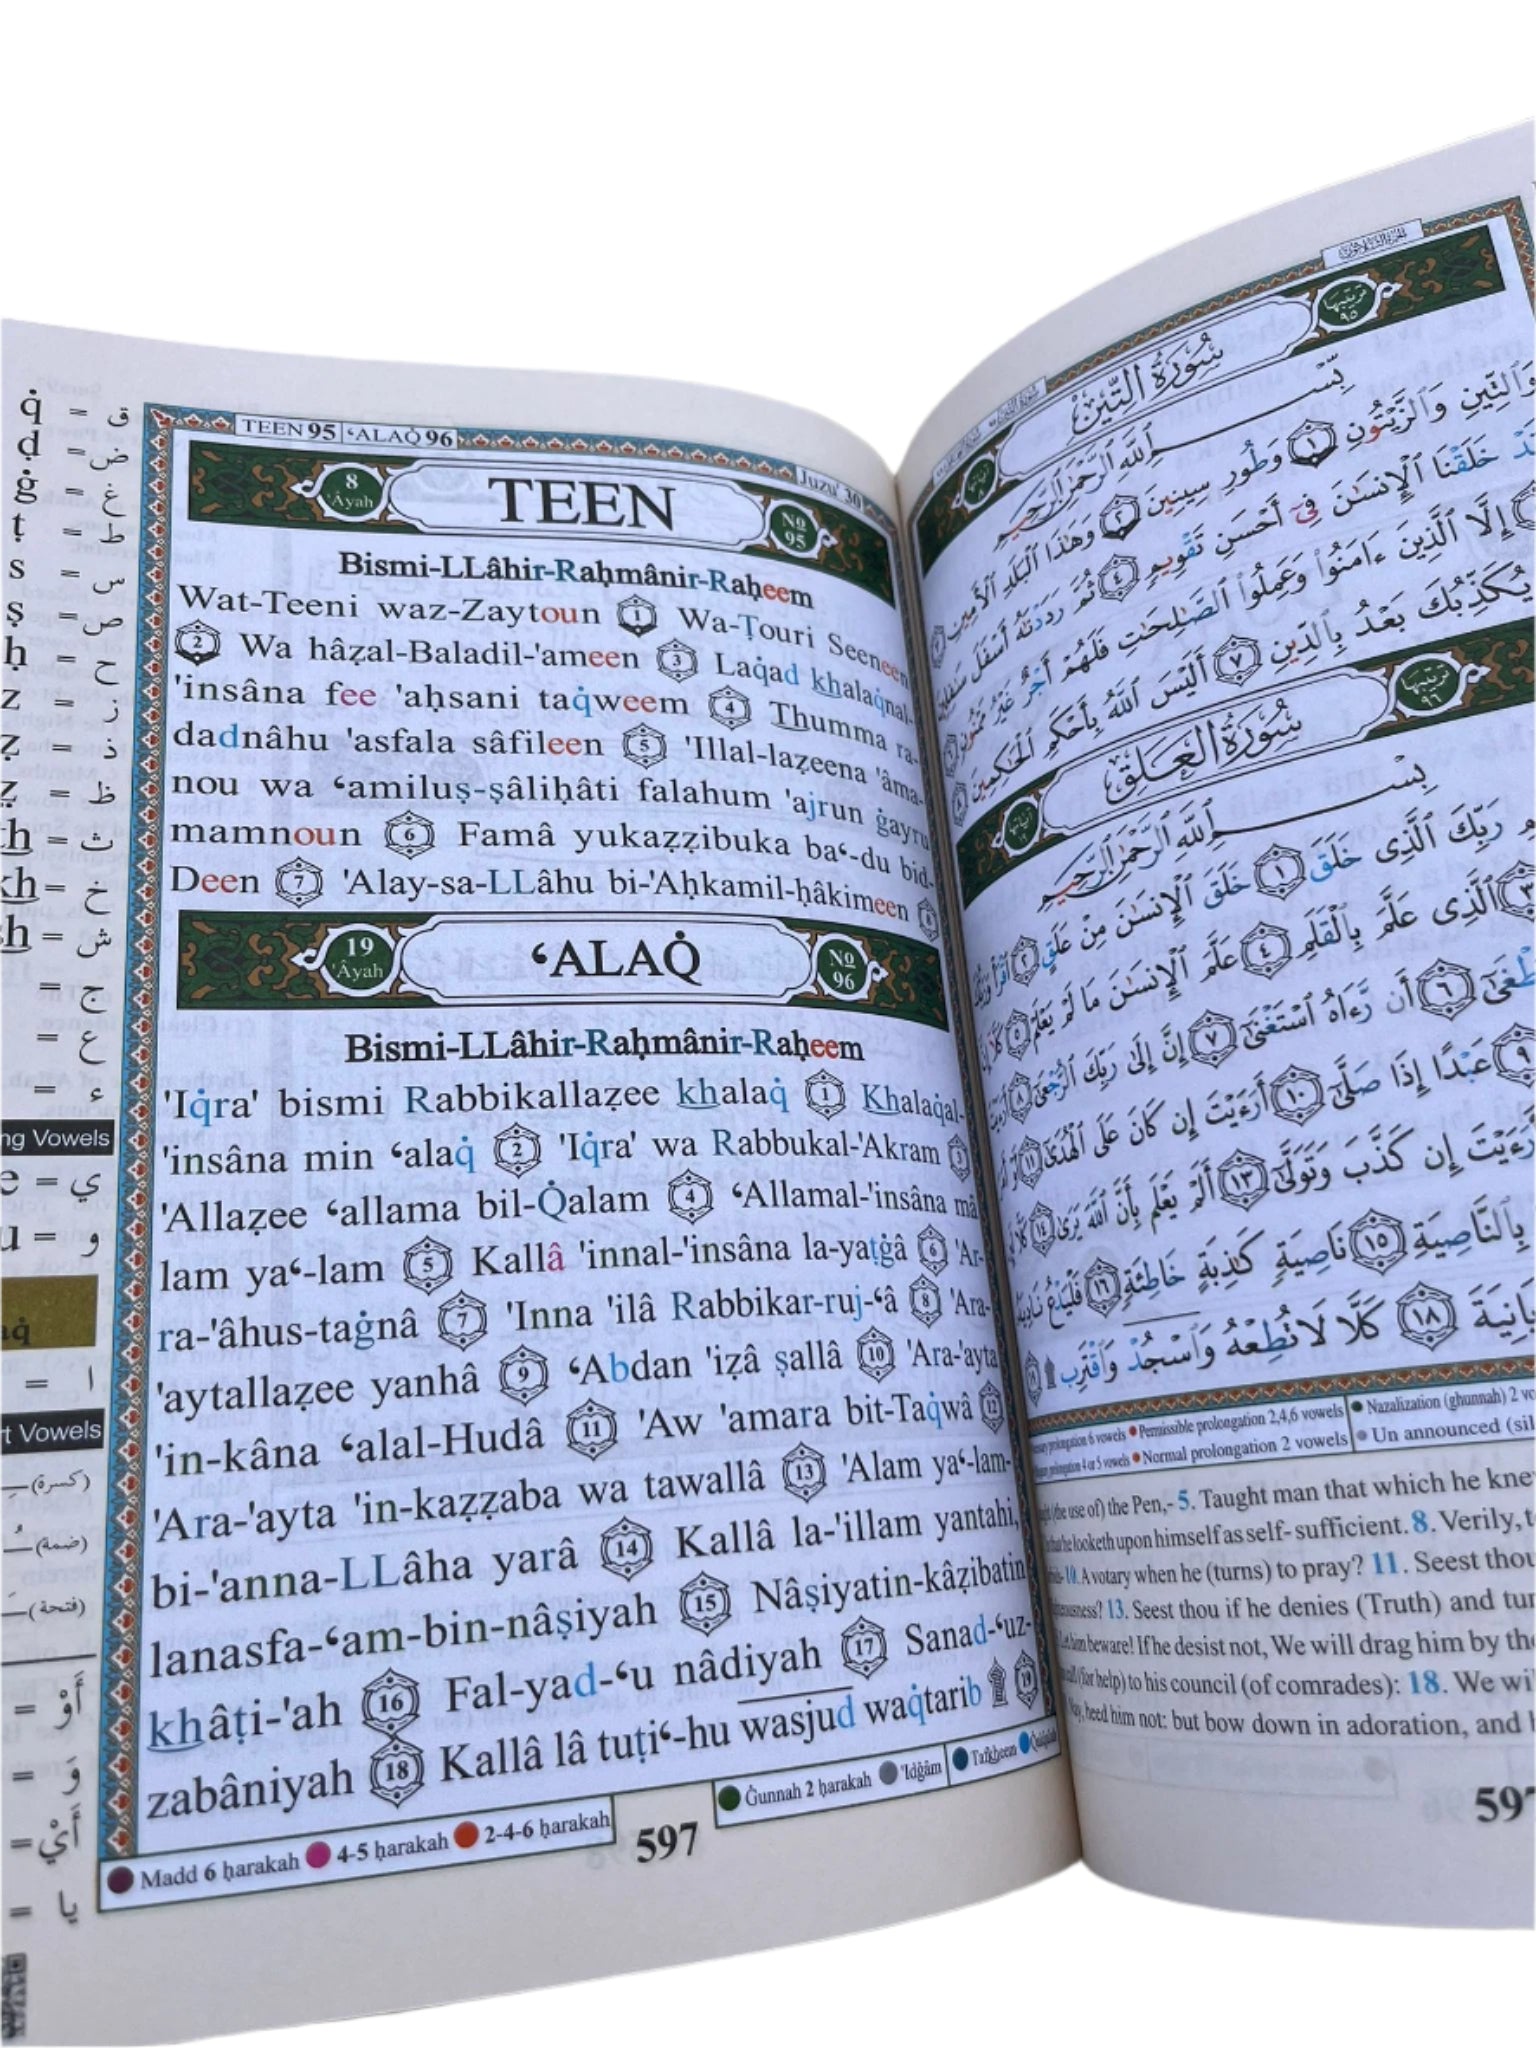 q̇ = ق
ḍ = ض
ġ = غ
ṭ = ط
s = س
ṣ = ص
ḥ = ح
z = ز
ẓ = ذ
ẓ = ظ
th = ث
kh = خ
sh = ش
= ج
= ع
= ء
ng Vowels
e = ي
u = و
aq̇
= ا
t Vowels
(كسرة)
(ضمة)
(فتحة)
= أَوْ
= وَ
= أَيْ
= يا
TEEN 95 | ‘ALAQ̇ 96
Juzu' 30
8 'Âyah
TEEN
No 95
Bismi-LLâhir-Raḥmânir-Raḥeem
Wat-Teeni waz-Zaytoun 1 Wa-Ṭouri Seeneen
2 Wa hâẓal-Baladil-'ameen 3 Laq̇ad khalaq̇nal-
'insâna fee 'aḥsani taq̇weem 4 Thumma ra-
dadnâhu 'asfala sâfileen 5 'Illal-laẓeena 'âma-
nou wa ‘amiluṣ-ṣâliḥâti falahum 'ajrun ġayru
mamnoun 6 Famâ yukaẓẓibuka ba‘-du bid-
Deen 7 'Alay-sa-LLâhu bi-'Aḥkamil-ḥâkimeen 8
19 'Âyah
‘ALAQ̇
No 96
Bismi-LLâhir-Raḥmânir-Raḥeem
'Iq̇ra' bismi Rabbikallaẓee khalaq̇ 1 Khalaq̇al-
'insâna min ‘alaq̇ 2 'Iq̇ra' wa Rabbukal-'Akram 3
'Allaẓee ‘allama bil-Q̇alam 4 ‘Allamal-'insâna mâ
lam ya‘-lam 5 Kallâ 'innal-'insâna la-yaṭġâ 6 'Ar-
ra-'âhus-taġnâ 7 'Inna 'ilâ Rabbikar-ruj-‘â 8 'Ara-
'aytallaẓee yanhâ 9 ‘Abdan 'iẓâ ṣallâ 10 'Ara-'ayta
'in-kâna ‘alal-Hudâ 11 'Aw 'amara bit-Taq̇wâ 12
'Ara-'ayta 'in-kaẓẓaba wa tawallâ 13 'Alam ya‘-lam-
bi-'anna-LLâha yarâ 14 Kallâ la-'illam yantahi,
lanasfa-‘am-bin-nâṣiyah 15 Nâṣiyatin-kâẓibatin
khâṭi-'ah 16 Fal-yad-‘u nâdiyah 17 Sanad-‘uz-
zabâniyah 18 Kallâ lâ tuṭi‘-hu wasjud waq̇tarib ۩ 19
Madd 6 ḥarakah 4-5 ḥarakah 2-4-6 ḥarakah
597
Ġunnah 2 ḥarakah 'Idġâm Tafkheem Qalqalah
ترتيبها ٩٥
سُورَةُ التِّينِ
آياتها ٨
بِسْمِ اللَّهِ الرَّحْمَٰنِ الرَّحِيمِ
وَالتِّينِ وَالزَّيْتُونِ ١ وَطُورِ سِينِينَ ٢ وَهَٰذَا الْبَلَدِ الْأَمِينِ ٣
خَلَقْنَا الْإِنسَٰنَ فِي أَحْسَنِ تَقْوِيمٍ ٤ ثُمَّ رَدَدْنَٰهُ أَسْفَلَ سَٰفِلِينَ
إِلَّا الَّذِينَ ءَامَنُوا وَعَمِلُوا الصَّٰلِحَٰتِ فَلَهُمْ أَجْرٌ غَيْرُ مَمْنُونٍ ٦
يُكَذِّبُكَ بَعْدُ بِالدِّينِ ٧ أَلَيْسَ اللَّهُ بِأَحْكَمِ الْحَٰكِمِينَ ٨
ترتيبها ٩٦
سُورَةُ الْعَلَقِ
آياتها ١٩
بِسْمِ اللَّهِ الرَّحْمَٰنِ الرَّحِيمِ
رَبِّكَ الَّذِي خَلَقَ ١ خَلَقَ الْإِنسَٰنَ مِنْ عَلَقٍ ٢ اقْرَأْ وَرَبُّكَ
٣ الَّذِي عَلَّمَ بِالْقَلَمِ ٤ عَلَّمَ الْإِنسَٰنَ مَا لَمْ يَعْلَمْ ٥ كَلَّا إِنَّ
٦ أَن رَّءَاهُ اسْتَغْنَىٰ ٧ إِنَّ إِلَىٰ رَبِّكَ الرُّجْعَىٰ ٨ أَرَءَيْتَ
٩ عَبْدًا إِذَا صَلَّىٰ ١٠ أَرَءَيْتَ إِن كَانَ عَلَى الْهُدَىٰ ١١ أَوْ
إِن كَذَّبَ وَتَوَلَّىٰ ١٣ أَلَمْ يَعْلَم بِأَنَّ اللَّهَ يَرَىٰ ١٤ كَلَّا
بِالنَّاصِيَةِ ١٥ نَاصِيَةٍ كَٰذِبَةٍ خَاطِئَةٍ ١٦ فَلْيَدْعُ نَادِيَهُ
١٨ كَلَّا لَا تُطِعْهُ وَاسْجُدْ وَاقْتَرِب ۩ ١٩
prolongation 6 vowels Permissible prolongation 2,4,6 vowels Nazalization (ghunnah) 2
prolongation 4 or 5 vowels Normal prolongation 2 vowels Un announced
(the use of) the Pen,- 5. Taught man that which he
he looketh upon himself as self- sufficient. 8. Verily,
10. A votary when he (turns) to pray? 11. Seest
13. Seest thou if he denies (Truth) and
Let him beware! If he desist not, We will drag him by
(for help) to his council (of comrades): 18. We
Nay, heed him not: but bow down in adoration, and
597